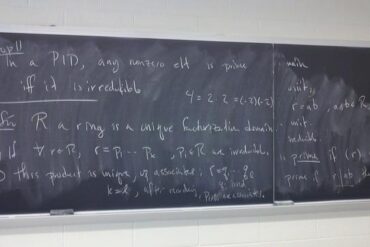 In a PID, any nonzero elt is prime
iff it is irreducible.
4 = 2·2 = (-2)(-2)
R a ring is a unique factorization domain
if ∀ r∈R, r = p₁ ... pₖ, pᵢ∈R are irreducible.
this product is unique, up associates, r = q₁ ... qₗ
k=l, after reordering, pᵢ and qᵢ are associates.
unit,
r = ab, a or b ∈ R
unit.
reducible
is prime if (r)
prime if r|ab, then